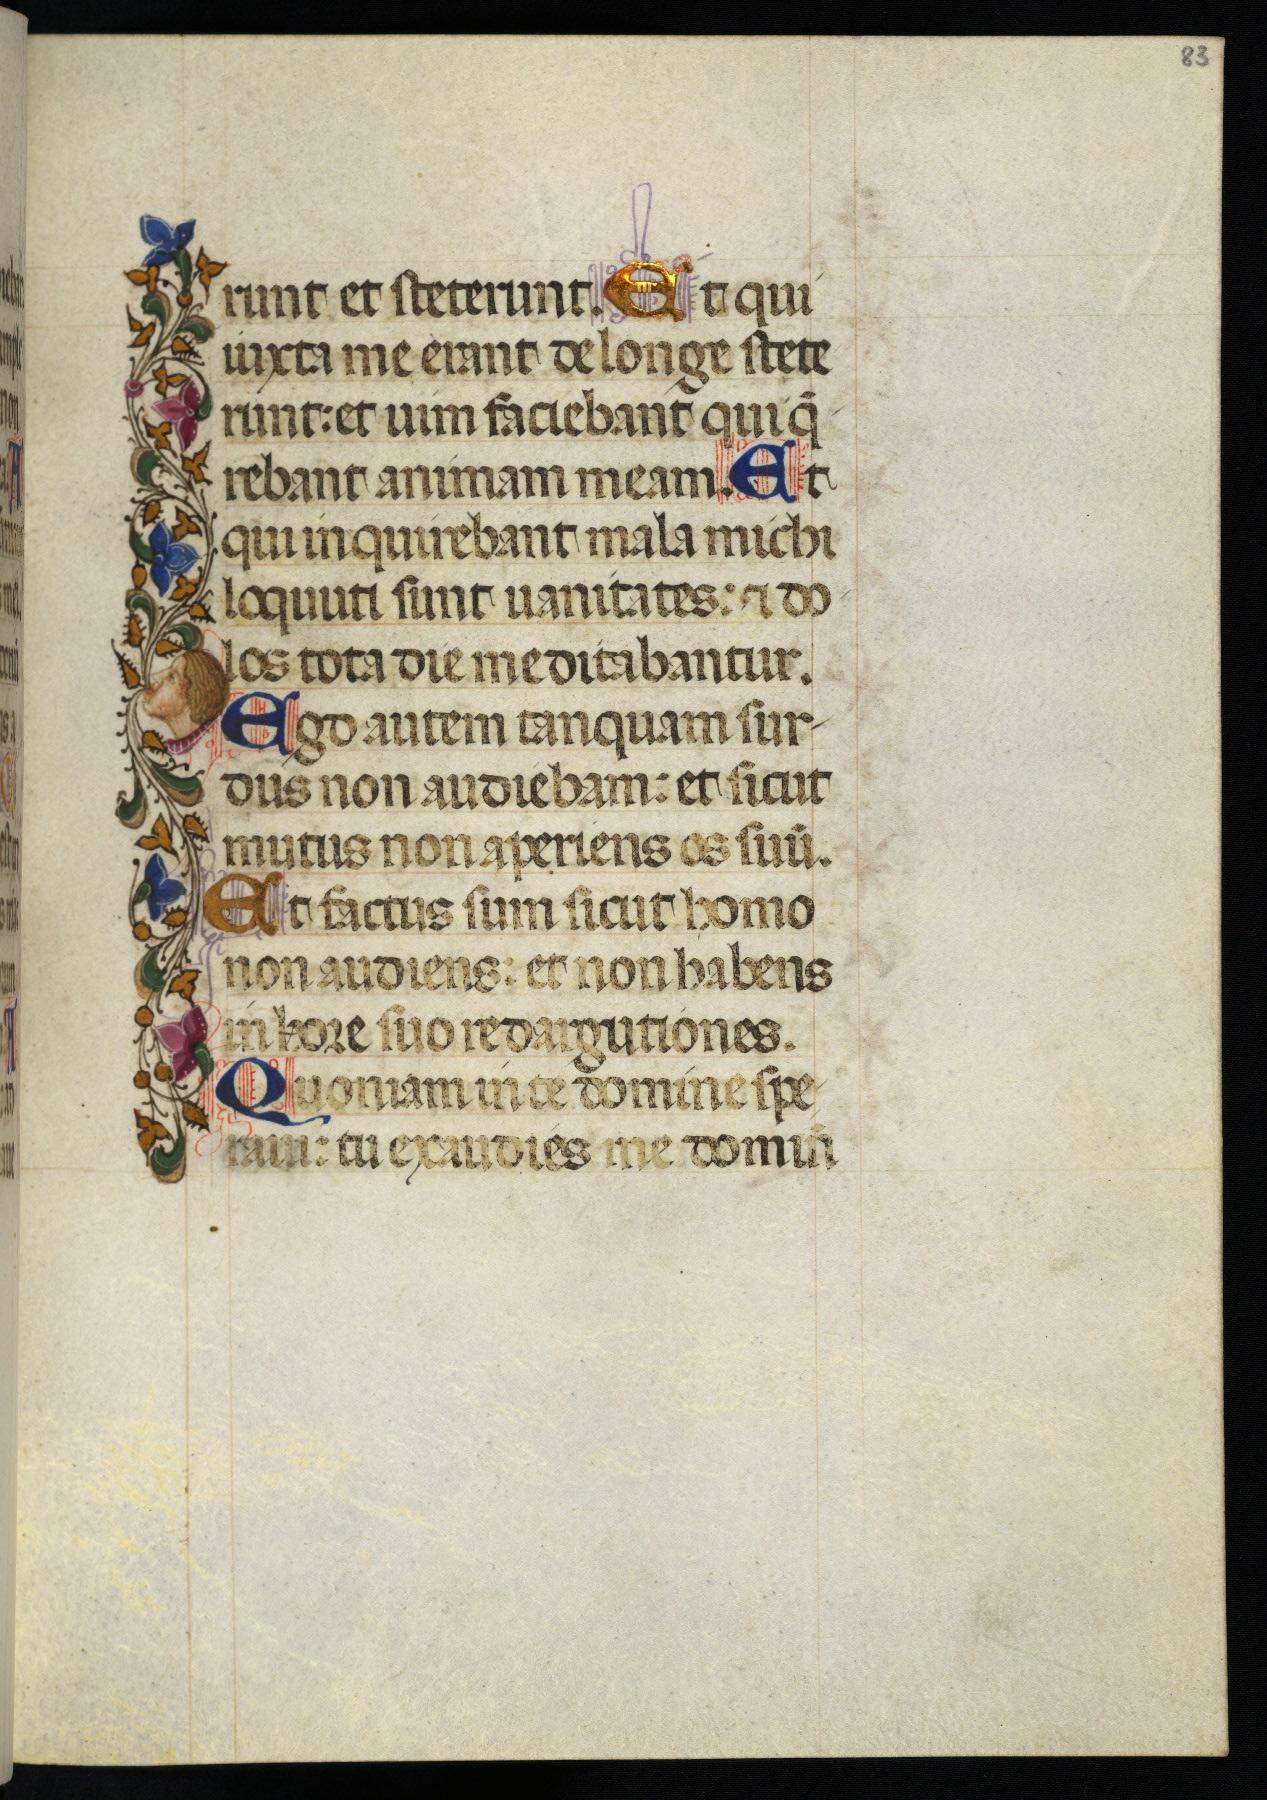 83
runt et steterunt. Et qui
iuxta me erant de longe stete
runt: et uim faciebant qui q̄
rebant animam meam. Et
qui inquirebant mala michi
loquuti sunt uanitates: ⁊ do
los tota die meditabantur.
Ego autem tanquam sur-
dus non audiebam: et sicut
mutus non aperiens os suū.
Et factus sum sicut homo
non audiens: et non habens
in ore suo redargutiones.
Quoniam in te domine spe
raui: tu exaudies me domiñ